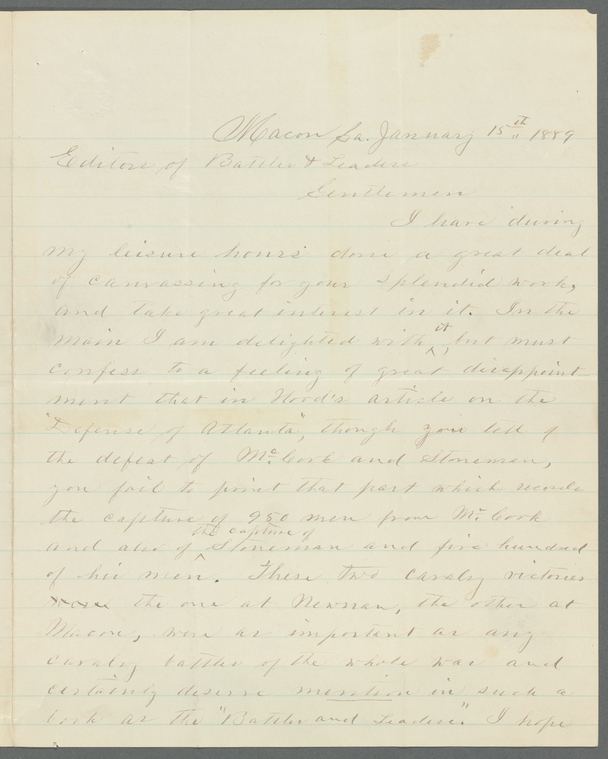 Macon Ga. January 15th 1889
Editors of Battles & Leaders
Gentlemen
I have during
my leisure hours done a great deal
of canvassing for your splendid work,
and take great interest in it. In the
main I am delighted with it, but must
confess to a feeling of great disappoint
ment that in Hood's article on the
"Defense of Atlanta", though you tell of
the defeat of McCook and Stoneman,
you fail to print that part which records
the capture of 950 men from McCook
and also of the capture of Stoneman and five hundred
of his men. These two cavalry victories
the one at Newnan, the other at
Macon, were as important as any
cavalry battles of the whole war and
certainly deserve mention in such a
book as the "Battles and Leaders." I hope